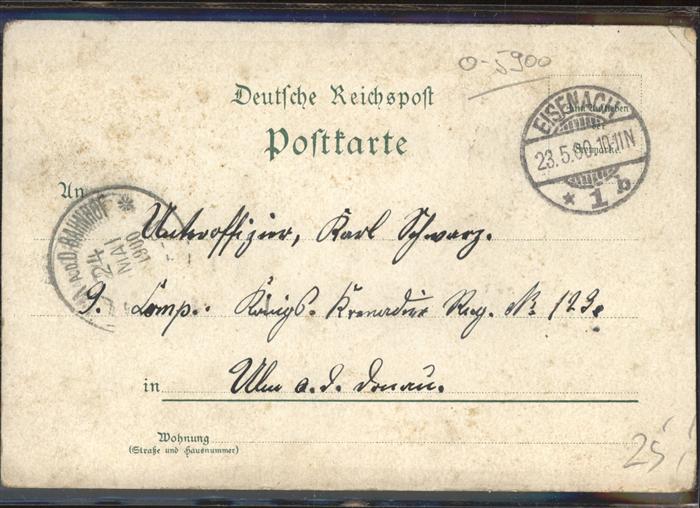 0-5900
Deutsche Reichspost
Postkarte
EISENACH
23.5.00.10-11N
* 1 b
An
A.D.D. BAHNHOF *
24
MAI
1900
Unteroffizier, Karl Schwarz.
9. Comp. Königs. Grenadier Reg. No 123.
in Ulm a. d. Donau.
Wohnung
(Straße und Hausnummer)
25